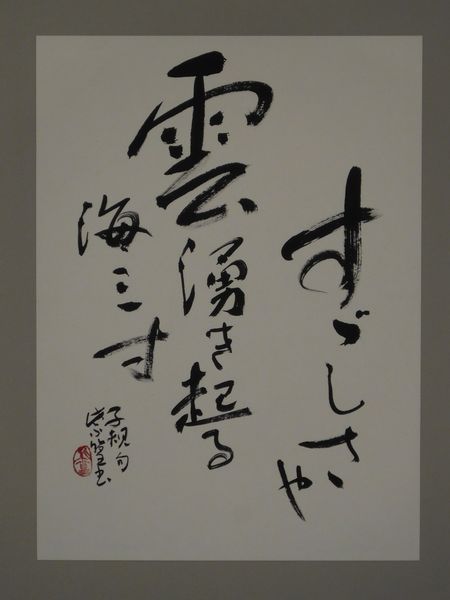 すゞしさや
雲湧き起る
海三寸
子規句